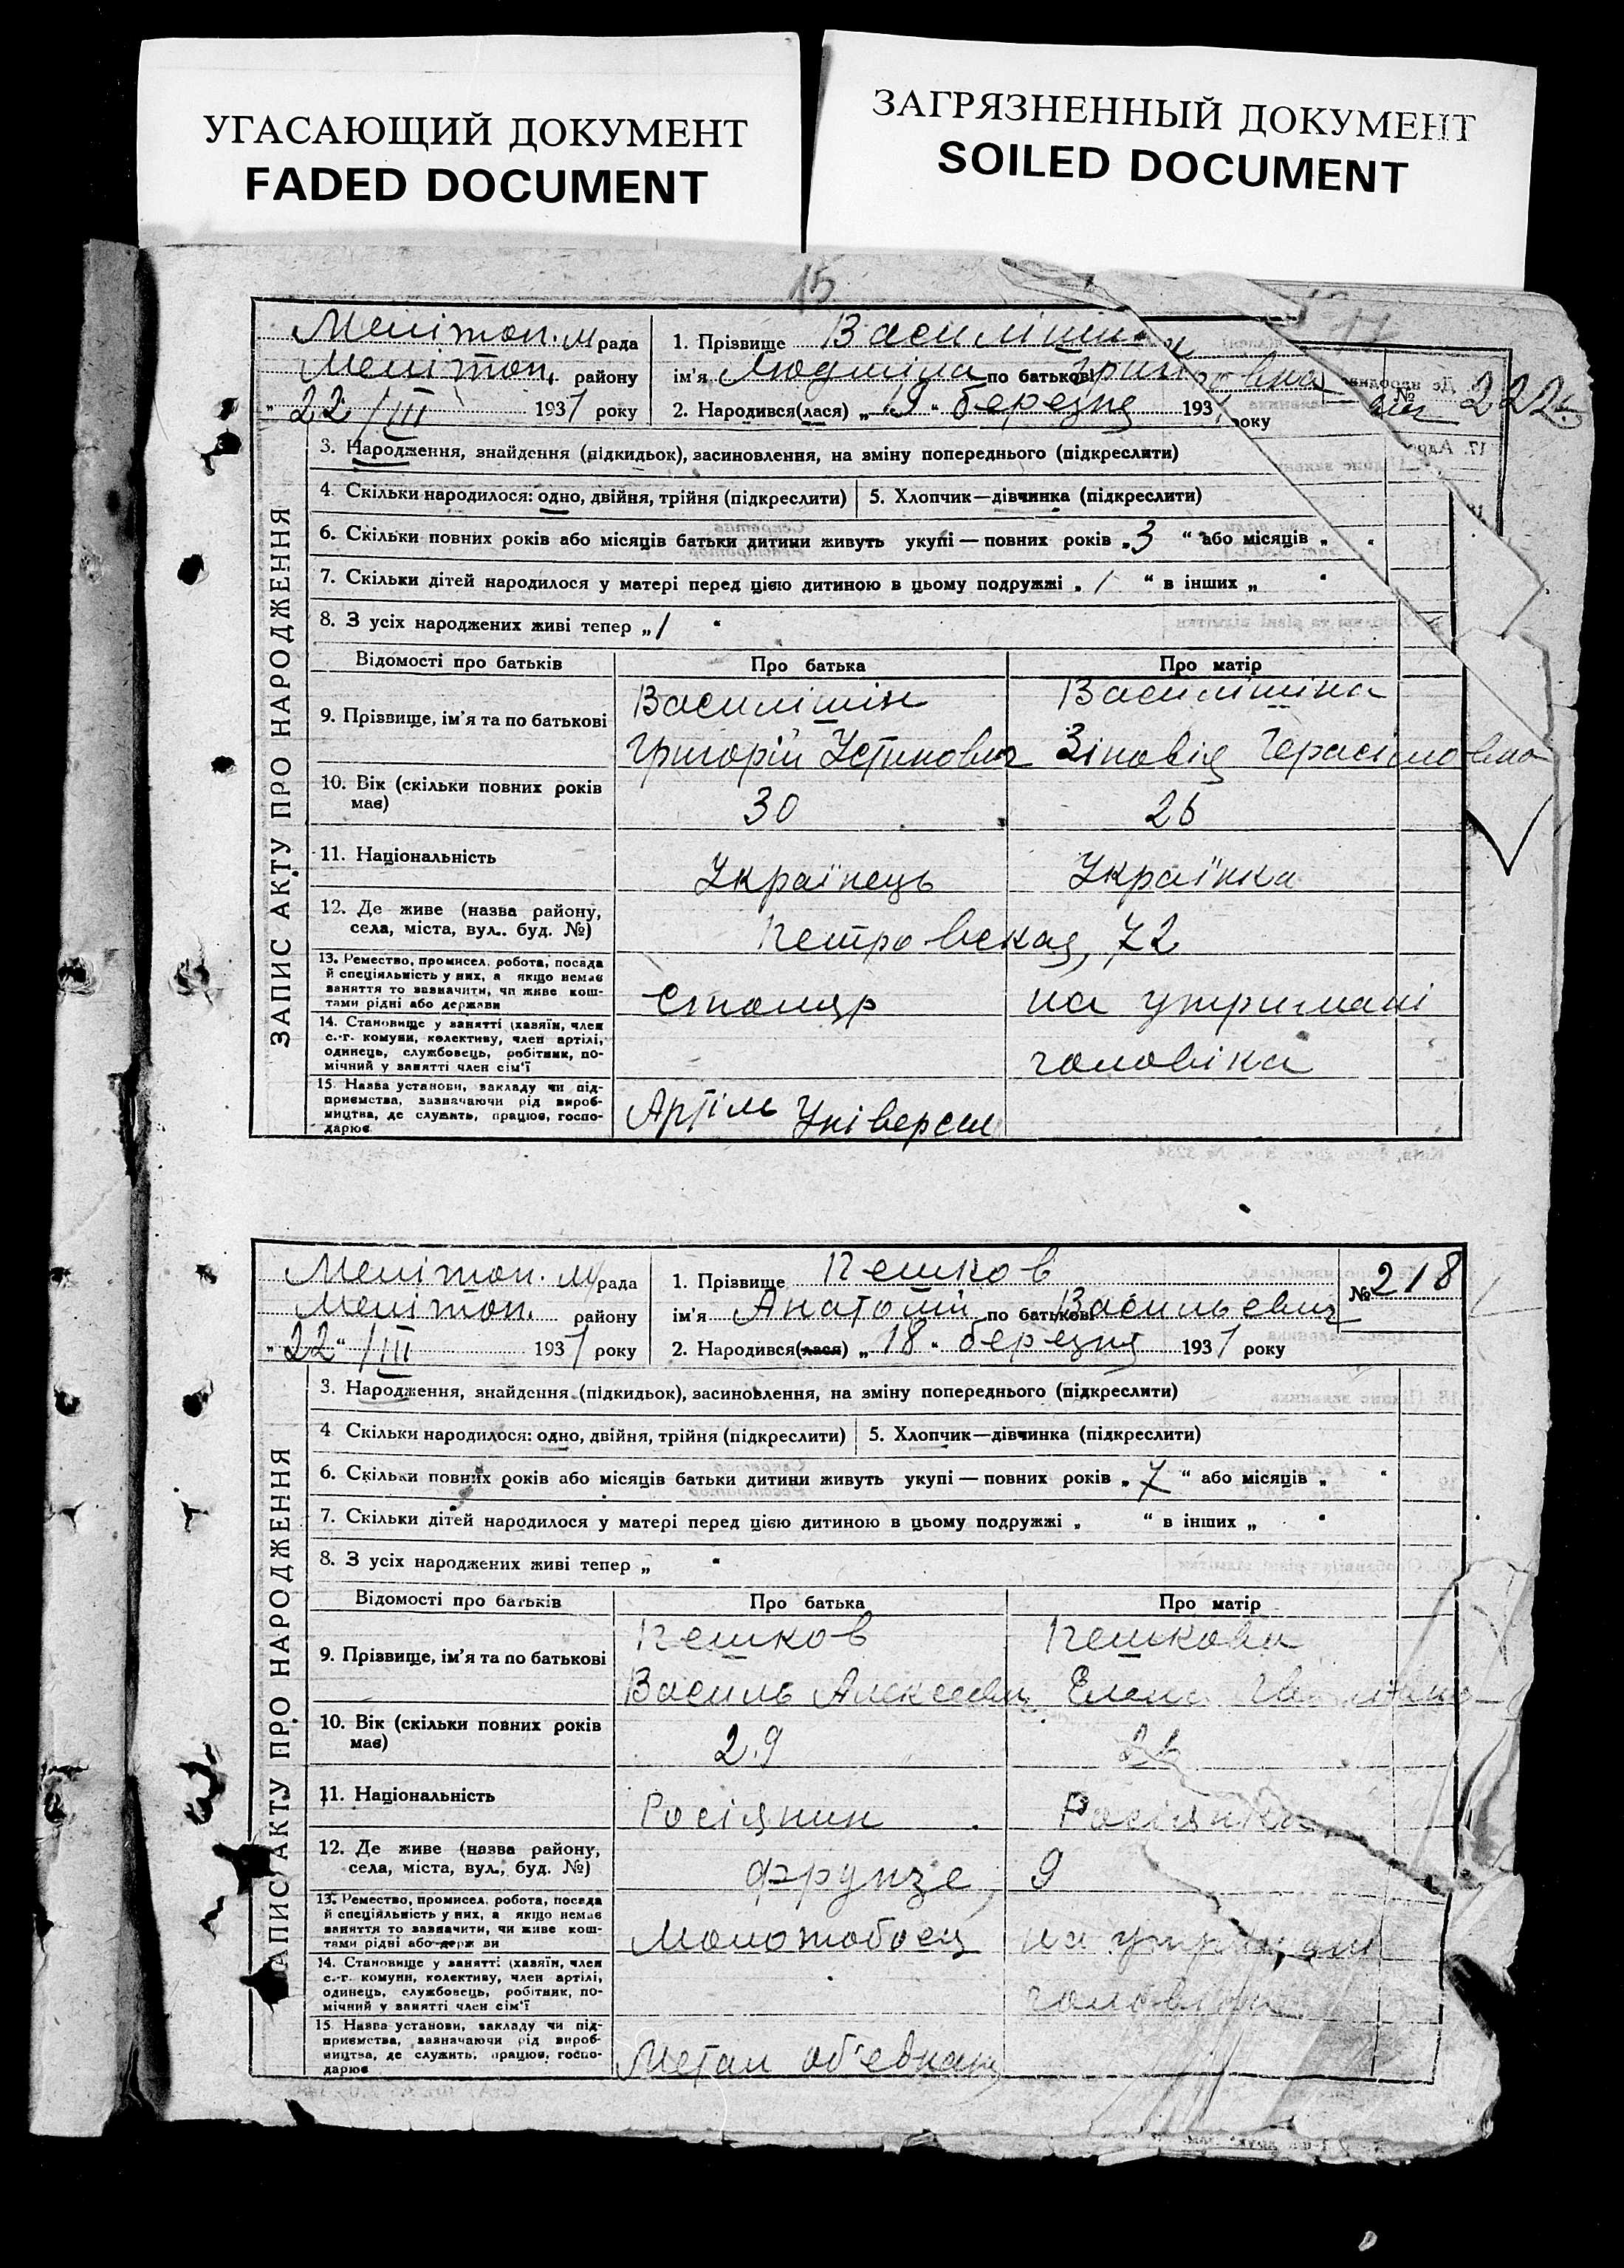 УГАСАЮЩИЙ ДОКУМЕНТ
FADED DOCUMENT
ЗАГРЯЗНЕННЫЙ ДОКУМЕНТ
SOILED DOCUMENT
15
ЗАПИС АКТУ ПРО НАРОДЖЕННЯ
Мелітоп. м рада
Мелітоп. району
„22/III 1931 року
1. Прізвище Василішин
ім'я Людміла по батькові Григоровна
2. Народився(лася) „19“ березня 193 року
№ 222
3. Народження, знайдення (підкидьок), засиновлення, на зміну попереднього (підкреслити)
4. Скільки народилося: одно, двійня, трійня (підкреслити)
5. Хлопчик—дівчинка (підкреслити)
6. Скільки повних років або місяців батьки дитини живуть укупі — повних років „3“ або місяців „ “
7. Скільки дітей народилося у матері перед цією дитиною в цьому подружжі „1“ в інших „ “
8. З усіх народжених живі тепер „1“
Відомості про батьків Про батька Про матір
9. Прізвище, ім'я та по батькові
Василішин Василішина
Григорій Устинович Зіновія Герасімовна
10. Вік (скільки повних років має)
30 26
11. Національність
Українець Українка
12. Де живе (назва району, села, міста, вул., буд. №)
Петровская, 72
13. Ремество, промисел, робота, посада й спеціяльність у них, а якщо немає заняття то зазначити, чи живе коштами рідні або держави
Столяр на утримані
14. Становище у занятті (хазяїн, член с.-г. комуни, колективу, член артілі, одинець, службовець, робітник, помічний у занятті член сім'ї
чоловіка
15. Назва установи, закладу чи підприємства, зазначаючи рід виробництва, де служить, працює, господарює
Артіль Універсал
ЗАПИС АКТУ ПРО НАРОДЖЕННЯ
Мелітоп. м/рада
Мелітоп. району
„22“/III 1931 року
1. Прізвище Пешков
ім'я Анатолій по батькові Васильевич
2. Народився(лася) „18“ березня 1931 року
№ 218
3. Народження, знайдення (підкидьок), засиновлення, на зміну попереднього (підкреслити)
4. Скільки народилося: одно, двійня, трійня (підкреслити)
5. Хлопчик—дівчинка (підкреслити)
6. Скільки повних років або місяців батьки дитини живуть укупі — повних років „7“ або місяців „ “
7. Скільки дітей народилося у матері перед цією дитиною в цьому подружжі „ “ в інших „ “
8. З усіх народжених живі тепер „ “
Відомості про батьків Про батька Про матір
9. Прізвище, ім'я та по батькові
Пешков Пешкова
Василь Алексеевич Елена
10. Вік (скільки повних років має)
29
11. Національність
Росіянин Росіянка
12. Де живе (назва району, села, міста, вул., буд. №)
Фрунзе, 9
13. Ремество, промисел, робота, посада й спеціяльність у них, а якщо немає заняття то зазначити, чи живе коштами рідні або держави
Молотобоец на утримані
14. Становище у занятті (хазяїн, член с.-г. комуни, колективу, член артілі, одинець, службовець, робітник, помічний у занятті член сім'ї
чоловіка
15. Назва установи, закладу чи підприємства, зазначаючи рід виробництва, де служить, працює, господарює
Метал об'еднан